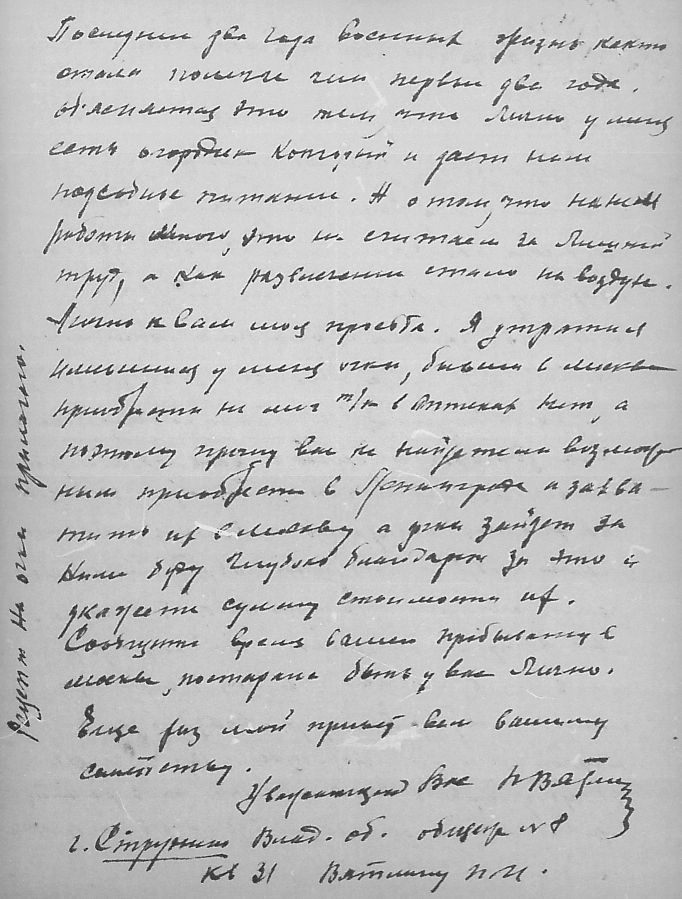 Последнии два года военные жизнь както
стала полегче чем первые два года.
объясняется это тем, что Лично у меня
есть огородик который и дает нам
подсобное питание. А о том, что на нем
работы много, это не считаем за Лишний
труд, а как развлечении стало на воздухе.
Лично к Вам моя просьба. Я утратил
имевшиися у меня очки, бывши в москве
приобрести не мог т/к в аптеках нет, а
поэтому прошу вас не найдетели возмож
ным приобрести в Ленинграде и захва-
тить их в москву а она зайдет за
Ними буду Глубоко благодарен за это и
укажете сумму стоимости их.
Сообщите время вашего пребывания в
москве, постараюсь быть у вас Лично.
Еще раз мой привет вам вашему
семейству.
Уважающий Вас
г. Струнино Влад. об. общеж №8
кв 31 Вятлину П.И.
Рецепт на очки прилагаю.